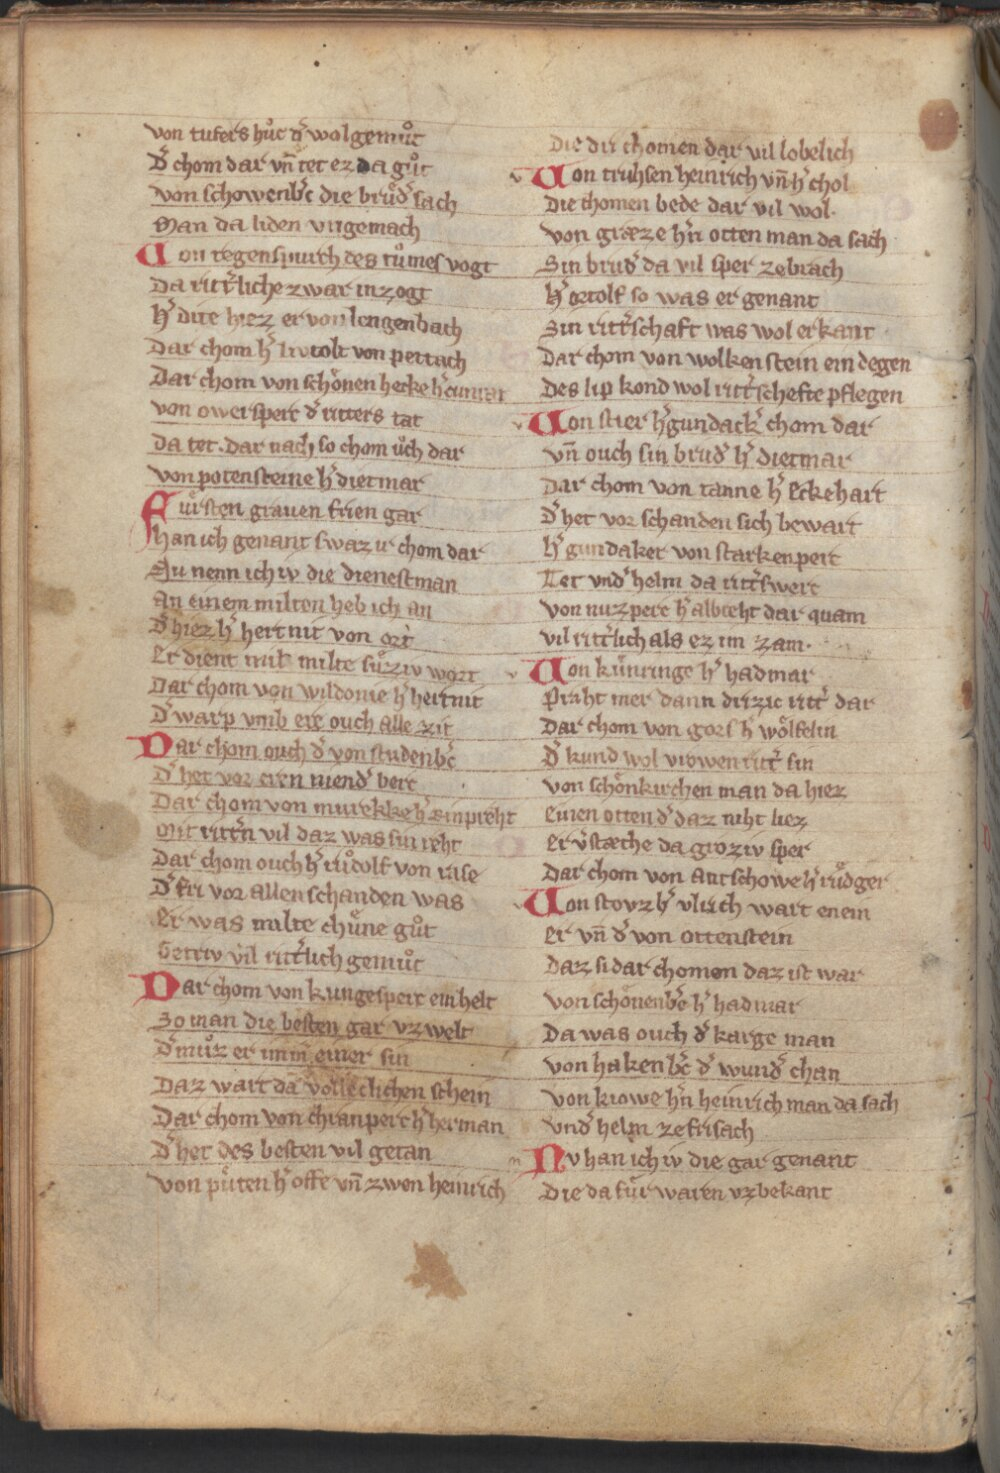 von tufers huͦc d̾ wolgemuͦt
D̾ chom dar vn̄ tet ez da guͦt
von schowenb̾c die bruͦd̾ sach
Man da liden vngemach
Von regenspurch des tuͦmes vogt
Da ritt̾liche zwar in zogt
h̾ Otte hiez er von lengenbach
Dar chom h̾ livtolt von pettach
Dar chom von schoͤnen hecke h̾ cunrat
von owersperc d̾ ritters tat
Da tet. Dar nach so chom uͦch dar
von potensteine h̾ dietmar
Fuͤrsten grauen frien gar
Han ich genant swaz ir chom dar
Nu nenn ich iv die dienestman
An einem milten heb ich an
D̾ hiez h̾ hertnit von ort
Er dient mit milte suͤziv wort
Dar chom von wildonie h̾ hertnit
D̾ warp vmb ere ouch alle zit
Dar chom ouch d̾ von stubenb̾c
D̾ het vor eren niend̾ berc
Dar chom von murekke h̾ Rinpreht
Mit ritt̾n vil daz was sin reht
Dar chom ouch h̾ ruͦdolf von rase
D̾ fri vor allen schanden was
Er was milte chuͤne guͦt
Getriv vil ritt̾lich gemuͦt
Dar chom von kungesperc ein helt
So man die besten gar vz welt
D̾ muͦz er imm̾ einer sin
Daz wart da volleclichen schein
Dar chom von chranperc h̾ herman
D̾ het des besten vil getan
von puͤten h̾ offe vn̄ zwen heinrich
Die dri chomen dar vil lobelich
Von truhsen heinrich vn̄ h̾ chol
Die chomen bede dar vil wol.
von græze h̾n otten man da sach
Sin brud̾ da vil sper zebrach
h̾ ortolf so was er genant
Sin ritt̾schaft was wol erkant
Dar chom von wolkenstein ein degen
Des lip kond wol ritt̾schefte pflegen
Von stier h̾ gundack̾ chom dar
vn̄ ouch sin brud̾ h̾ dietmar
Dar chom von tanne h̾ Eckehart
D̾ het vor schanden sich bewart
h̾ gundaker von starkenperc
Tet vnd̾ helm da ritt̾swerc
von nuzperc h̾ albreht dar quam
vil ritt̾lich als ez im zam.
Von kuͤnringe h̾ hadmar
Praht mer dann drizic ritt̾ dar
Dar chom von gors h̾ woͤlfelin
D̾ kund wol vrowen ritt̾ sin
von schoͤnkirchen man da hiez
Einen otten d̾ daz niht liez
Er v̾stæche da groziv sper
Dar chom von antschowe h̾ ruͤdger
Von stovz h̾ vlrich wart enein
Er vn̄ d̾ von ottenstein
Daz si dar chomen daz ist war
von schoͤnenb̾c h̾ hadmar
Da was ouch d̾ karge man
von hakenb̾c d̾ wund̾ chan
von kiowe h̾n heinrich man da sach
vnd̾ helm ze frisach
Nv han ich iv die gar genant
Die da fuͤr waren vz bekant